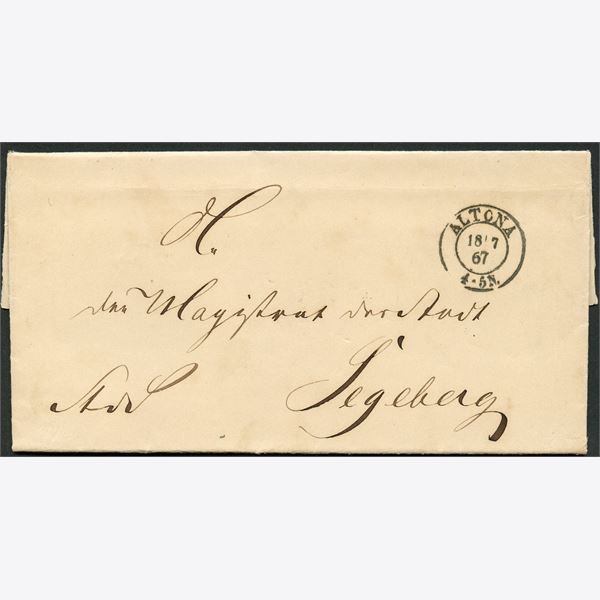 ALTONA
18 7
67
4-5N.
den Magistrat der Stadt
Segeberg